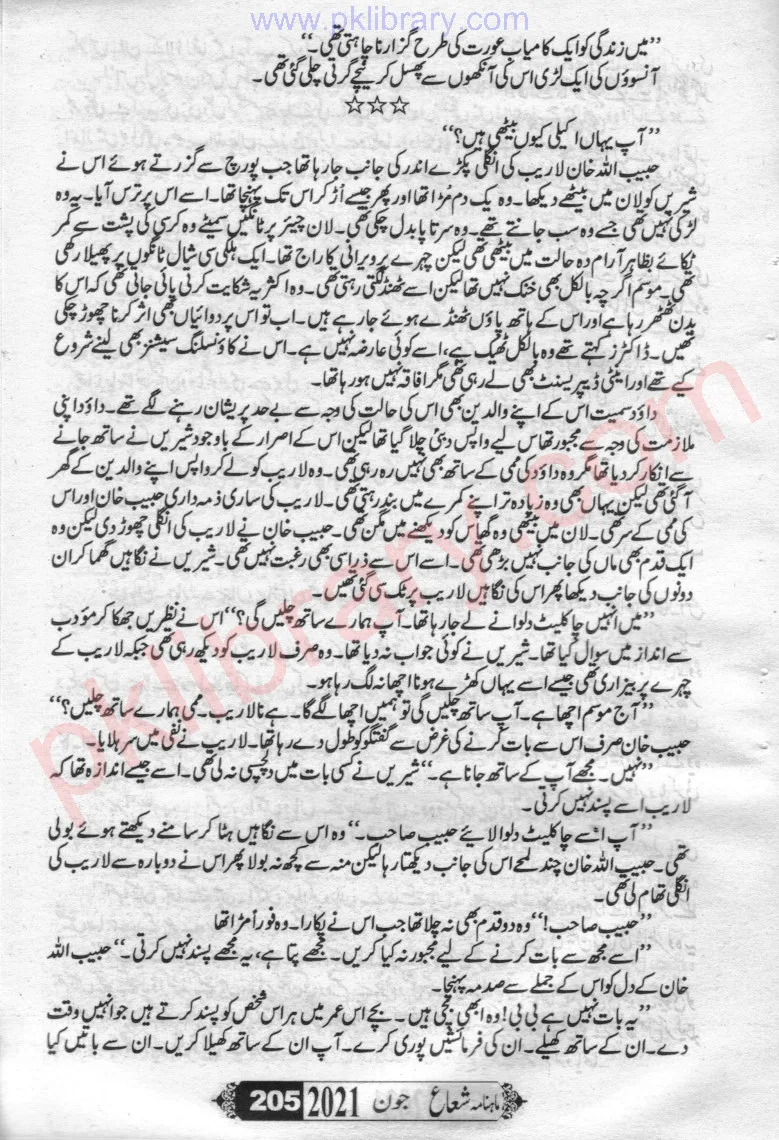 www.pklibrary.com
”میں زندگی کو ایک کامیاب عورت کی طرح گزارنا چاہتی تھی۔“
آنسوؤں کی ایک لڑی اس کی آنکھوں سے پھسل کر نیچے گرتی چلی گئی تھی۔
☆☆☆
”آپ یہاں اکیلی کیوں بیٹھی ہیں؟“
حبیب اللہ خان لاریب کی انگلی پکڑے اندر کی جانب جا رہا تھا جب پورچ سے گزرتے ہوئے اس نے
شیریں کو لان میں بیٹھے دیکھا۔ وہ یک دم مڑا تھا اور پھر جیسے اُڑ کر اس تک پہنچا تھا۔ اسے اس پر ترس آیا۔ یہ وہ
لڑکی نہیں تھی جسے وہ سب جانتے تھے۔ وہ سرتاپا بدل چکی تھی۔ لان چیئر پر ٹانگیں سمیٹے وہ کرسی کی پشت سے کمر
ٹکائے بظاہر آرام دہ حالت میں بیٹھی تھی لیکن چہرے پر ویرانی کا راج تھا۔ ایک ہلکی سی شال ٹانگوں پر پھیلا رکھی
تھی۔ موسم اگرچہ بالکل بھی خنک نہیں تھا لیکن اسے ٹھنڈ لگتی رہتی تھی۔ وہ اکثر یہ شکایت کرتی پائی جاتی تھی کہ اس کا
بدن ٹھٹھر رہا ہے اور اس کے ہاتھ پاؤں ٹھنڈے ہوئے جا رہے ہیں۔ اب تو اس پر دوائیاں بھی اثر کرنا چھوڑ چکی
تھیں۔ ڈاکٹرز کہتے تھے وہ بالکل ٹھیک ہے، اسے کوئی عارضہ نہیں ہے۔ اس نے کاؤنسلنگ سیشنز بھی لینے شروع
کیے تھے اور اینٹی ڈیپریسنٹ بھی لے رہی تھی مگر افاقہ نہیں ہو رہا تھا۔
داؤد سمیت اس کے اپنے والدین بھی اس کی حالت کی وجہ سے بے حد پریشان رہنے لگے تھے۔ داؤد اپنی
ملازمت کی وجہ سے مجبور تھا اس لیے واپس دبئی چلا گیا تھا لیکن اس کے اصرار کے باوجود شیریں نے ساتھ جانے
سے انکار کر دیا تھا مگر وہ داؤد کی ممی کے ساتھ بھی نہیں رہ رہی تھی۔ وہ لاریب کو لے کر واپس اپنے والدین کے گھر
آ گئی تھی لیکن یہاں بھی وہ زیادہ تر اپنے کمرے میں بند رہتی تھی۔ لاریب کی ساری ذمہ داری حبیب خان اور اس
کی ممی کے سر تھی۔ لان میں بیٹھی وہ گھاس کو دیکھنے میں مگن تھی۔ حبیب خان نے لاریب کی انگلی چھوڑ دی لیکن وہ
ایک قدم بھی ماں کی جانب نہیں بڑھی تھی۔ اسے اس سے ذرا سی بھی رغبت نہیں تھی۔ شیریں نے نگاہیں گھما کر ان
دونوں کی جانب دیکھا پھر اس کی نگاہیں لاریب پر ٹک سی گئی تھیں۔
”میں انہیں چاکلیٹ دلوانے لے جا رہا تھا۔ آپ ہمارے ساتھ چلیں گی؟“ اس نے نظریں جھکا کر مؤدب
سے انداز میں سوال کیا تھا۔ شیریں نے کوئی جواب نہ دیا تھا۔ وہ صرف لاریب کو دیکھ رہی تھی جبکہ لاریب کے
چہرے پر بیزاری تھی جیسے اسے یہاں کھڑے ہونا اچھا نہ لگ رہا ہو۔
”آج موسم اچھا ہے۔ آپ ساتھ چلیں گی تو ہمیں اچھا لگے گا۔ ہے نا لاریب۔ ممی ہمارے ساتھ چلیں؟“
حبیب خان صرف اس سے بات کرنے کی غرض سے گفتگو کو طول دے رہا تھا۔ لاریب نے نفی میں سر ہلایا۔
”نہیں۔ مجھے آپ کے ساتھ جانا ہے۔“ شیریں نے کسی بات میں دلچسپی نہ لی تھی۔ اسے جیسے اندازہ تھا کہ
لاریب اسے پسند نہیں کرتی۔
”آپ اسے چاکلیٹ دلوا لائیے حبیب صاحب۔“ وہ اس سے نگاہیں ہٹا کر سامنے دیکھتے ہوئے بولی
تھی۔ حبیب اللہ خان چند لمحے اس کی جانب دیکھتا رہا لیکن منہ سے کچھ نہ بولا پھر اس نے دوبارہ سے لاریب کی
انگلی تھام لی تھی۔
”حبیب صاحب!“ وہ دو قدم بھی نہ چلا تھا جب اس نے پکارا۔ وہ فوراً مڑا تھا
”اسے مجھ سے بات کرنے کے لیے مجبور نہ کیا کریں۔ مجھے پتا ہے، یہ مجھے پسند نہیں کرتی۔“ حبیب اللہ
خان کے دل کو اس کے جملے سے صدمہ پہنچا۔
”یہ بات نہیں ہے بی بی! وہ ابھی بچی ہیں۔ بچے اس عمر میں ہر اس شخص کو پسند کرتے ہیں جو انہیں وقت
دے۔ ان کے ساتھ کھیلے۔ ان کی فرمائشیں پوری کرے۔ آپ ان کے ساتھ کھیلا کریں۔ ان سے باتیں کیا
ماہنامہ شعاع جون 2021 205
pklibrary.com